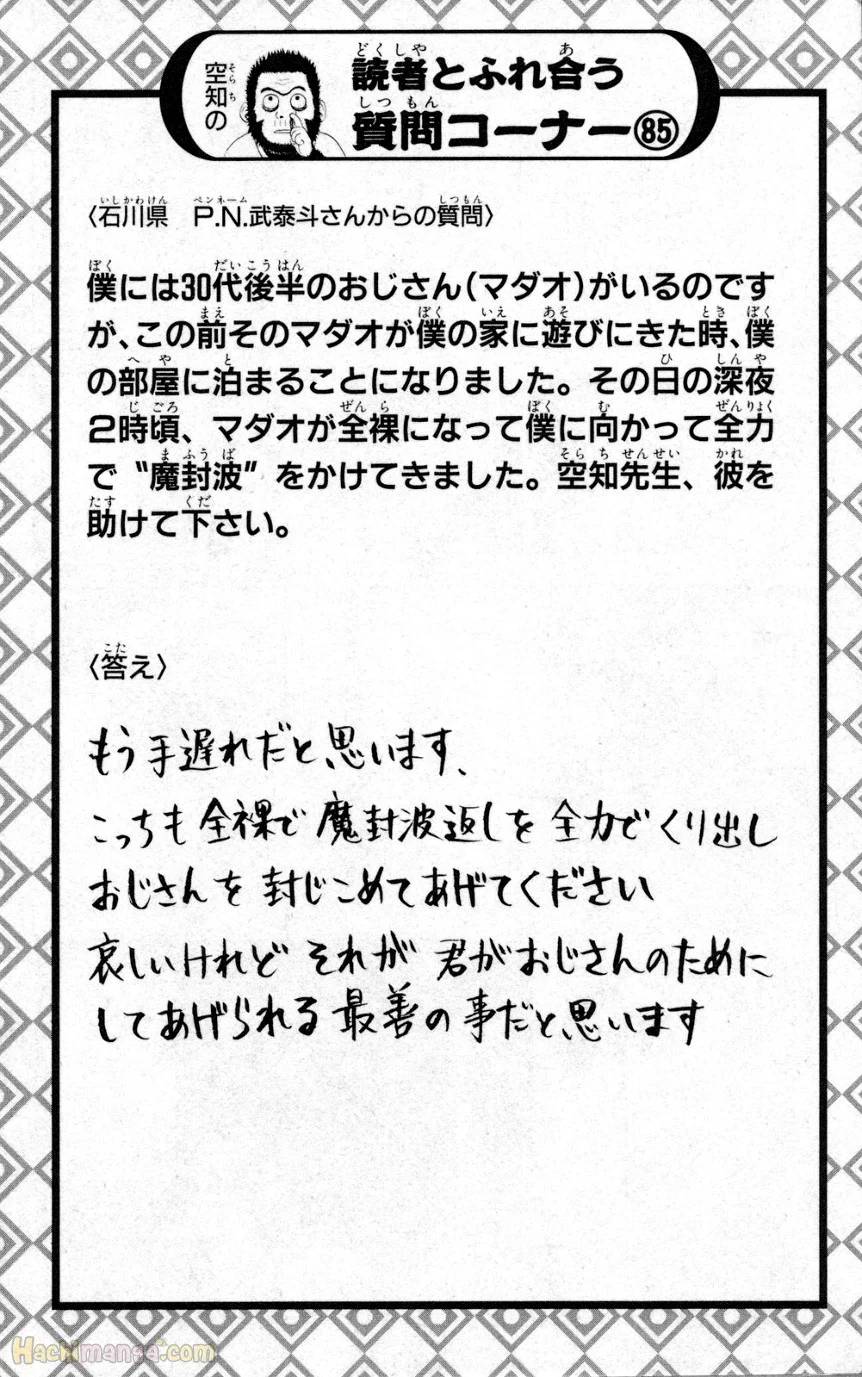 空知の
読者とふれ合う
質問コーナー85
〈石川県　P.N.武泰斗さんからの質問〉
僕には30代後半のおじさん(マダオ)がいるのです
が、この前そのマダオが僕の家に遊びにきた時、僕
の部屋に泊まることになりました。その日の深夜
2時頃、マダオが全裸になって僕に向かって全力
で“魔封波”をかけてきました。空知先生、彼を
助けて下さい。
〈答え〉
もう手遅れだと思います、
こっちも全裸で魔封波返しを全力でくり出し
おじさんを封じこめてあげてください
哀しいけれど それが 君がおじさんのために
してあげられる最善の事だと思います
Hachimanga.com